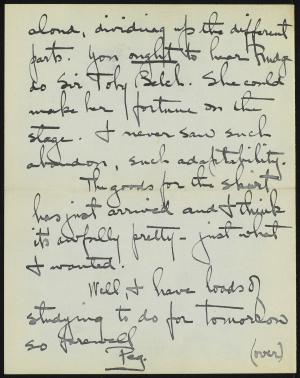 aloud, dividing up the different
parts. You ought to hear Pudge
do Sir Toby Belch. She could
make her fortune on the
stage. I never saw such
abandon, such adaptability.
The goods for the skirt
has just arrived and I think
it's awfully pretty - just what
I wanted.
Well, I have loads of
studying to do for tomorrow
so farewell
Peg.
(over)